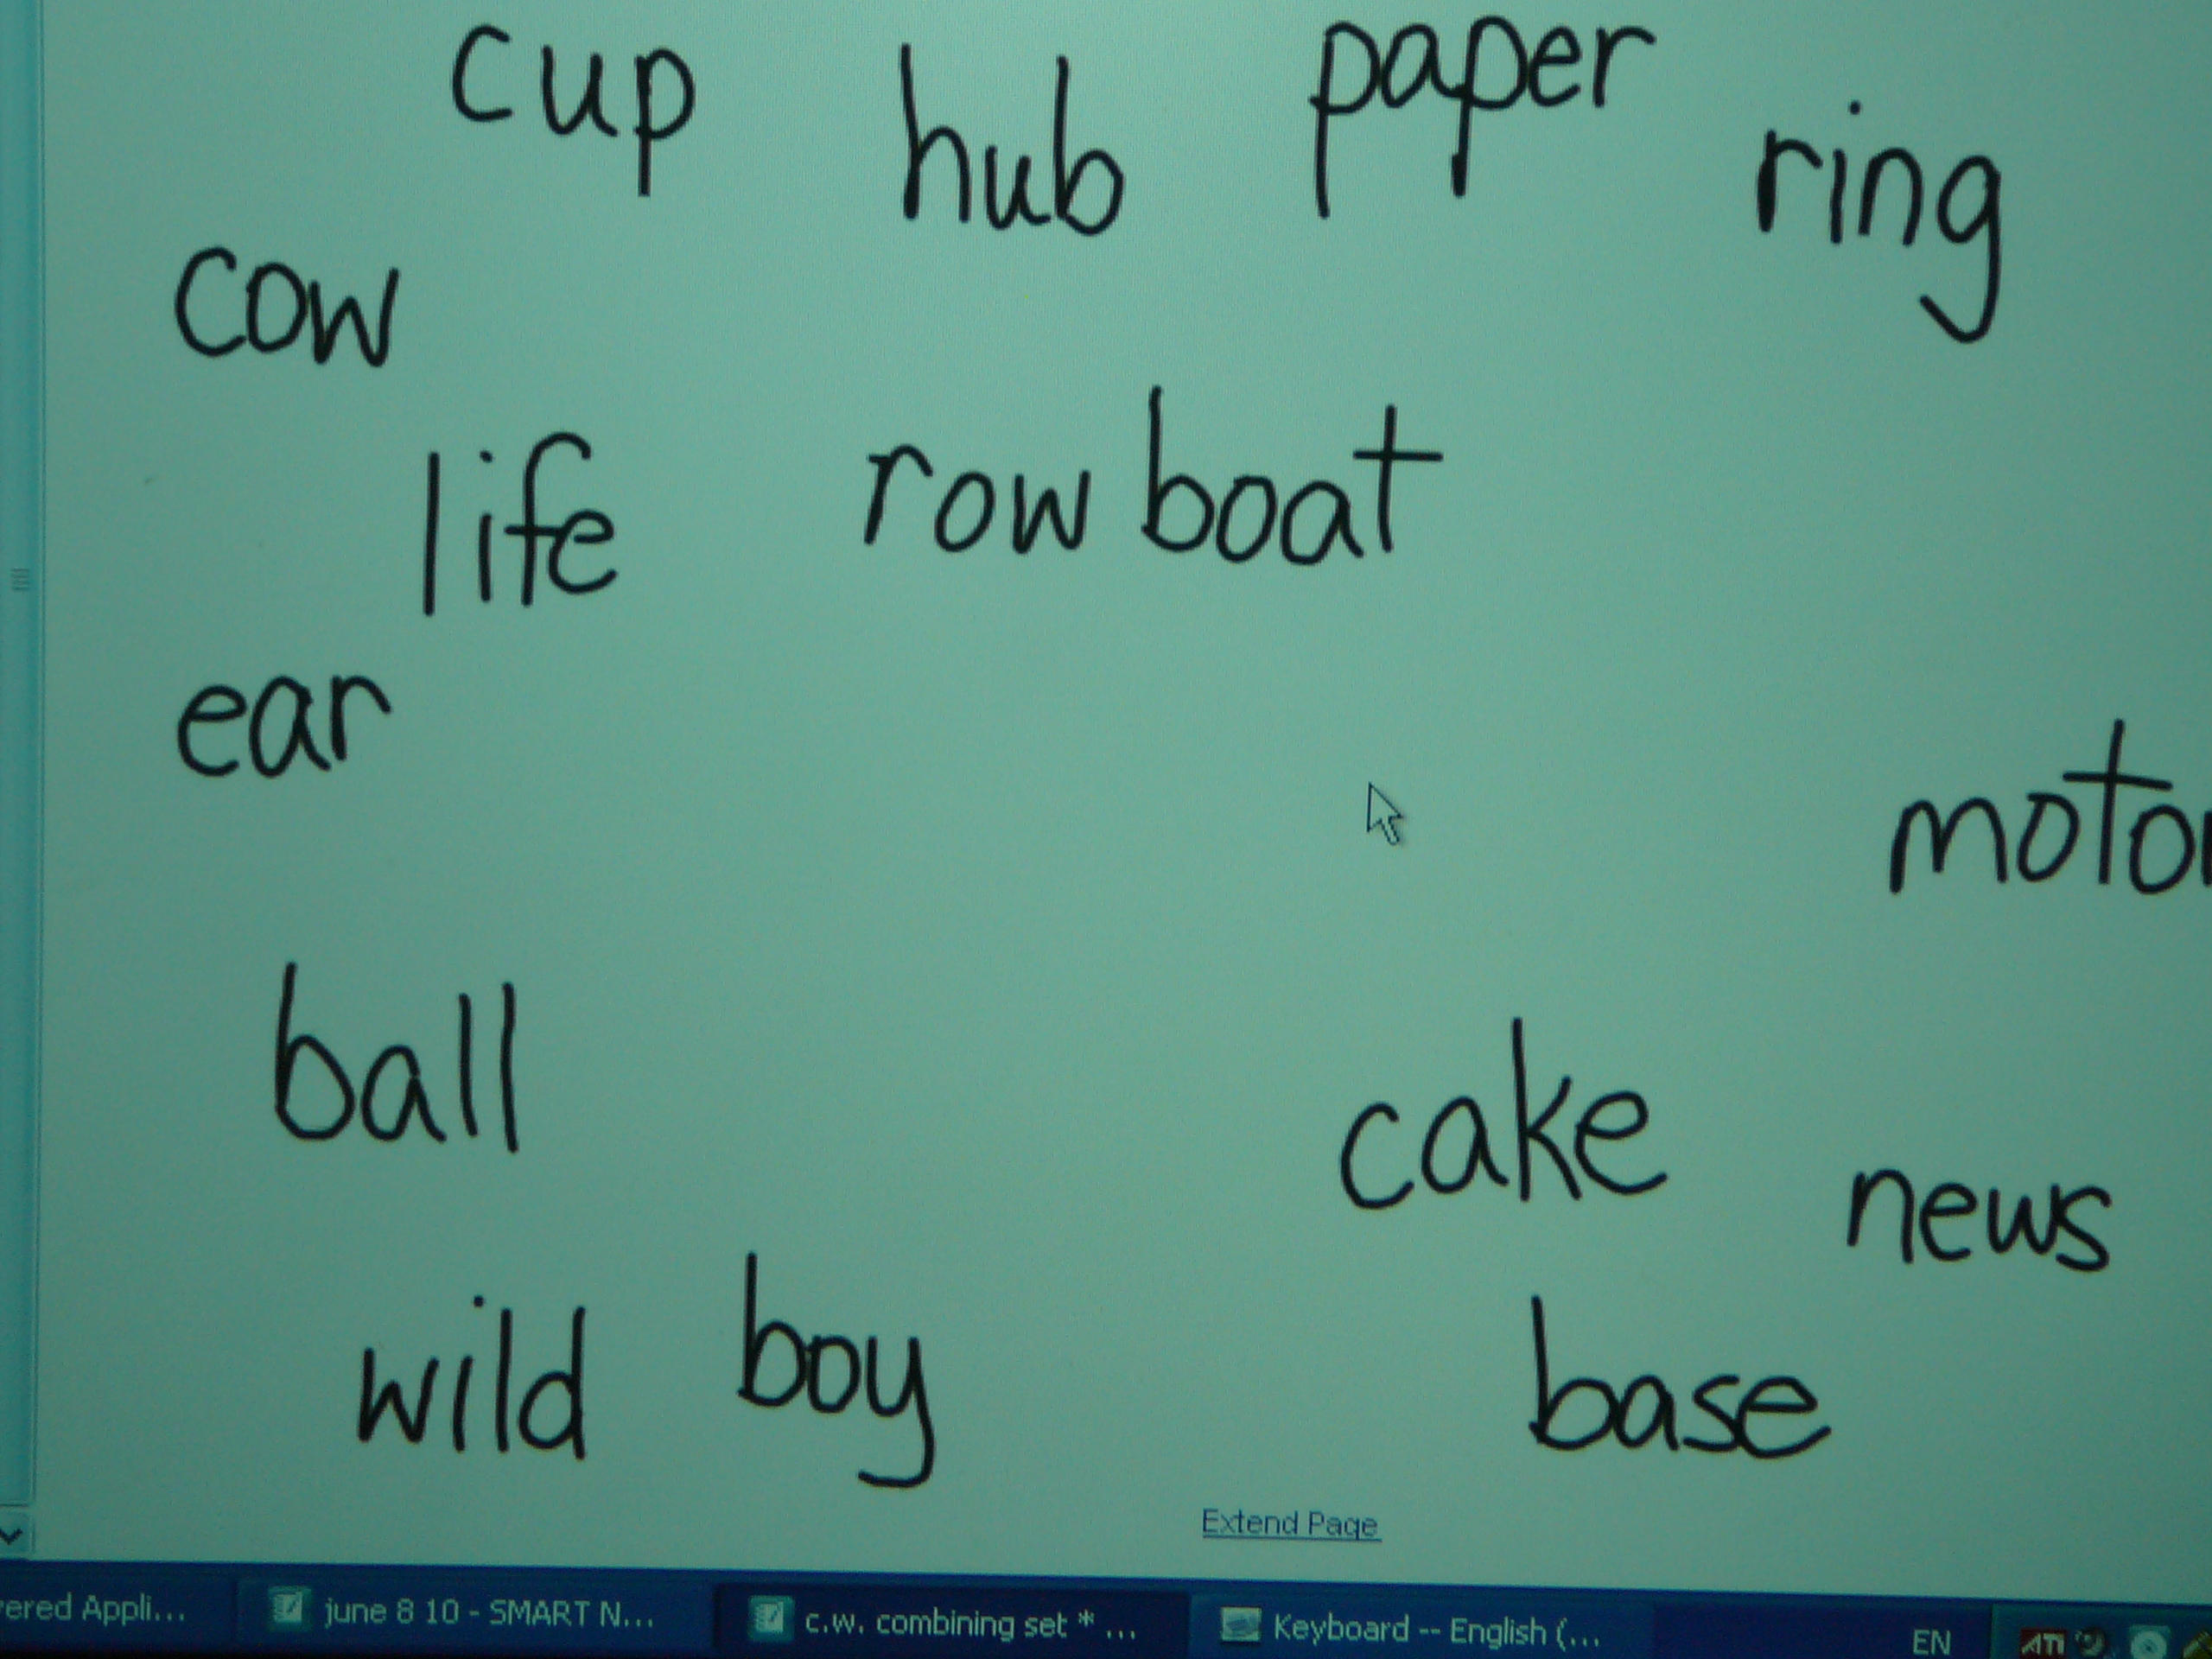 cup hub paper ring
cow
life row boat
ear
motor
ball
cake
news
wild boy base
Extend Page
ered Appli... june 8 10 - SMART N... c.w. combining set * ... Keyboard -- English (... EN ATI